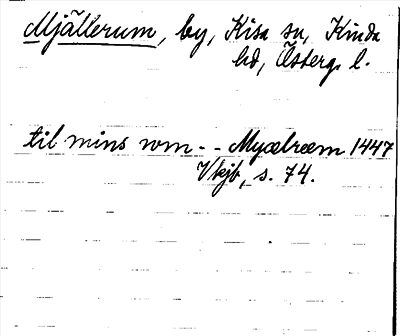 Mjällerum, by, Kisa sn, Kinda
hd, Österg. l.
til mins wm - - Myælreem 1447
Vkjb, s. 74.